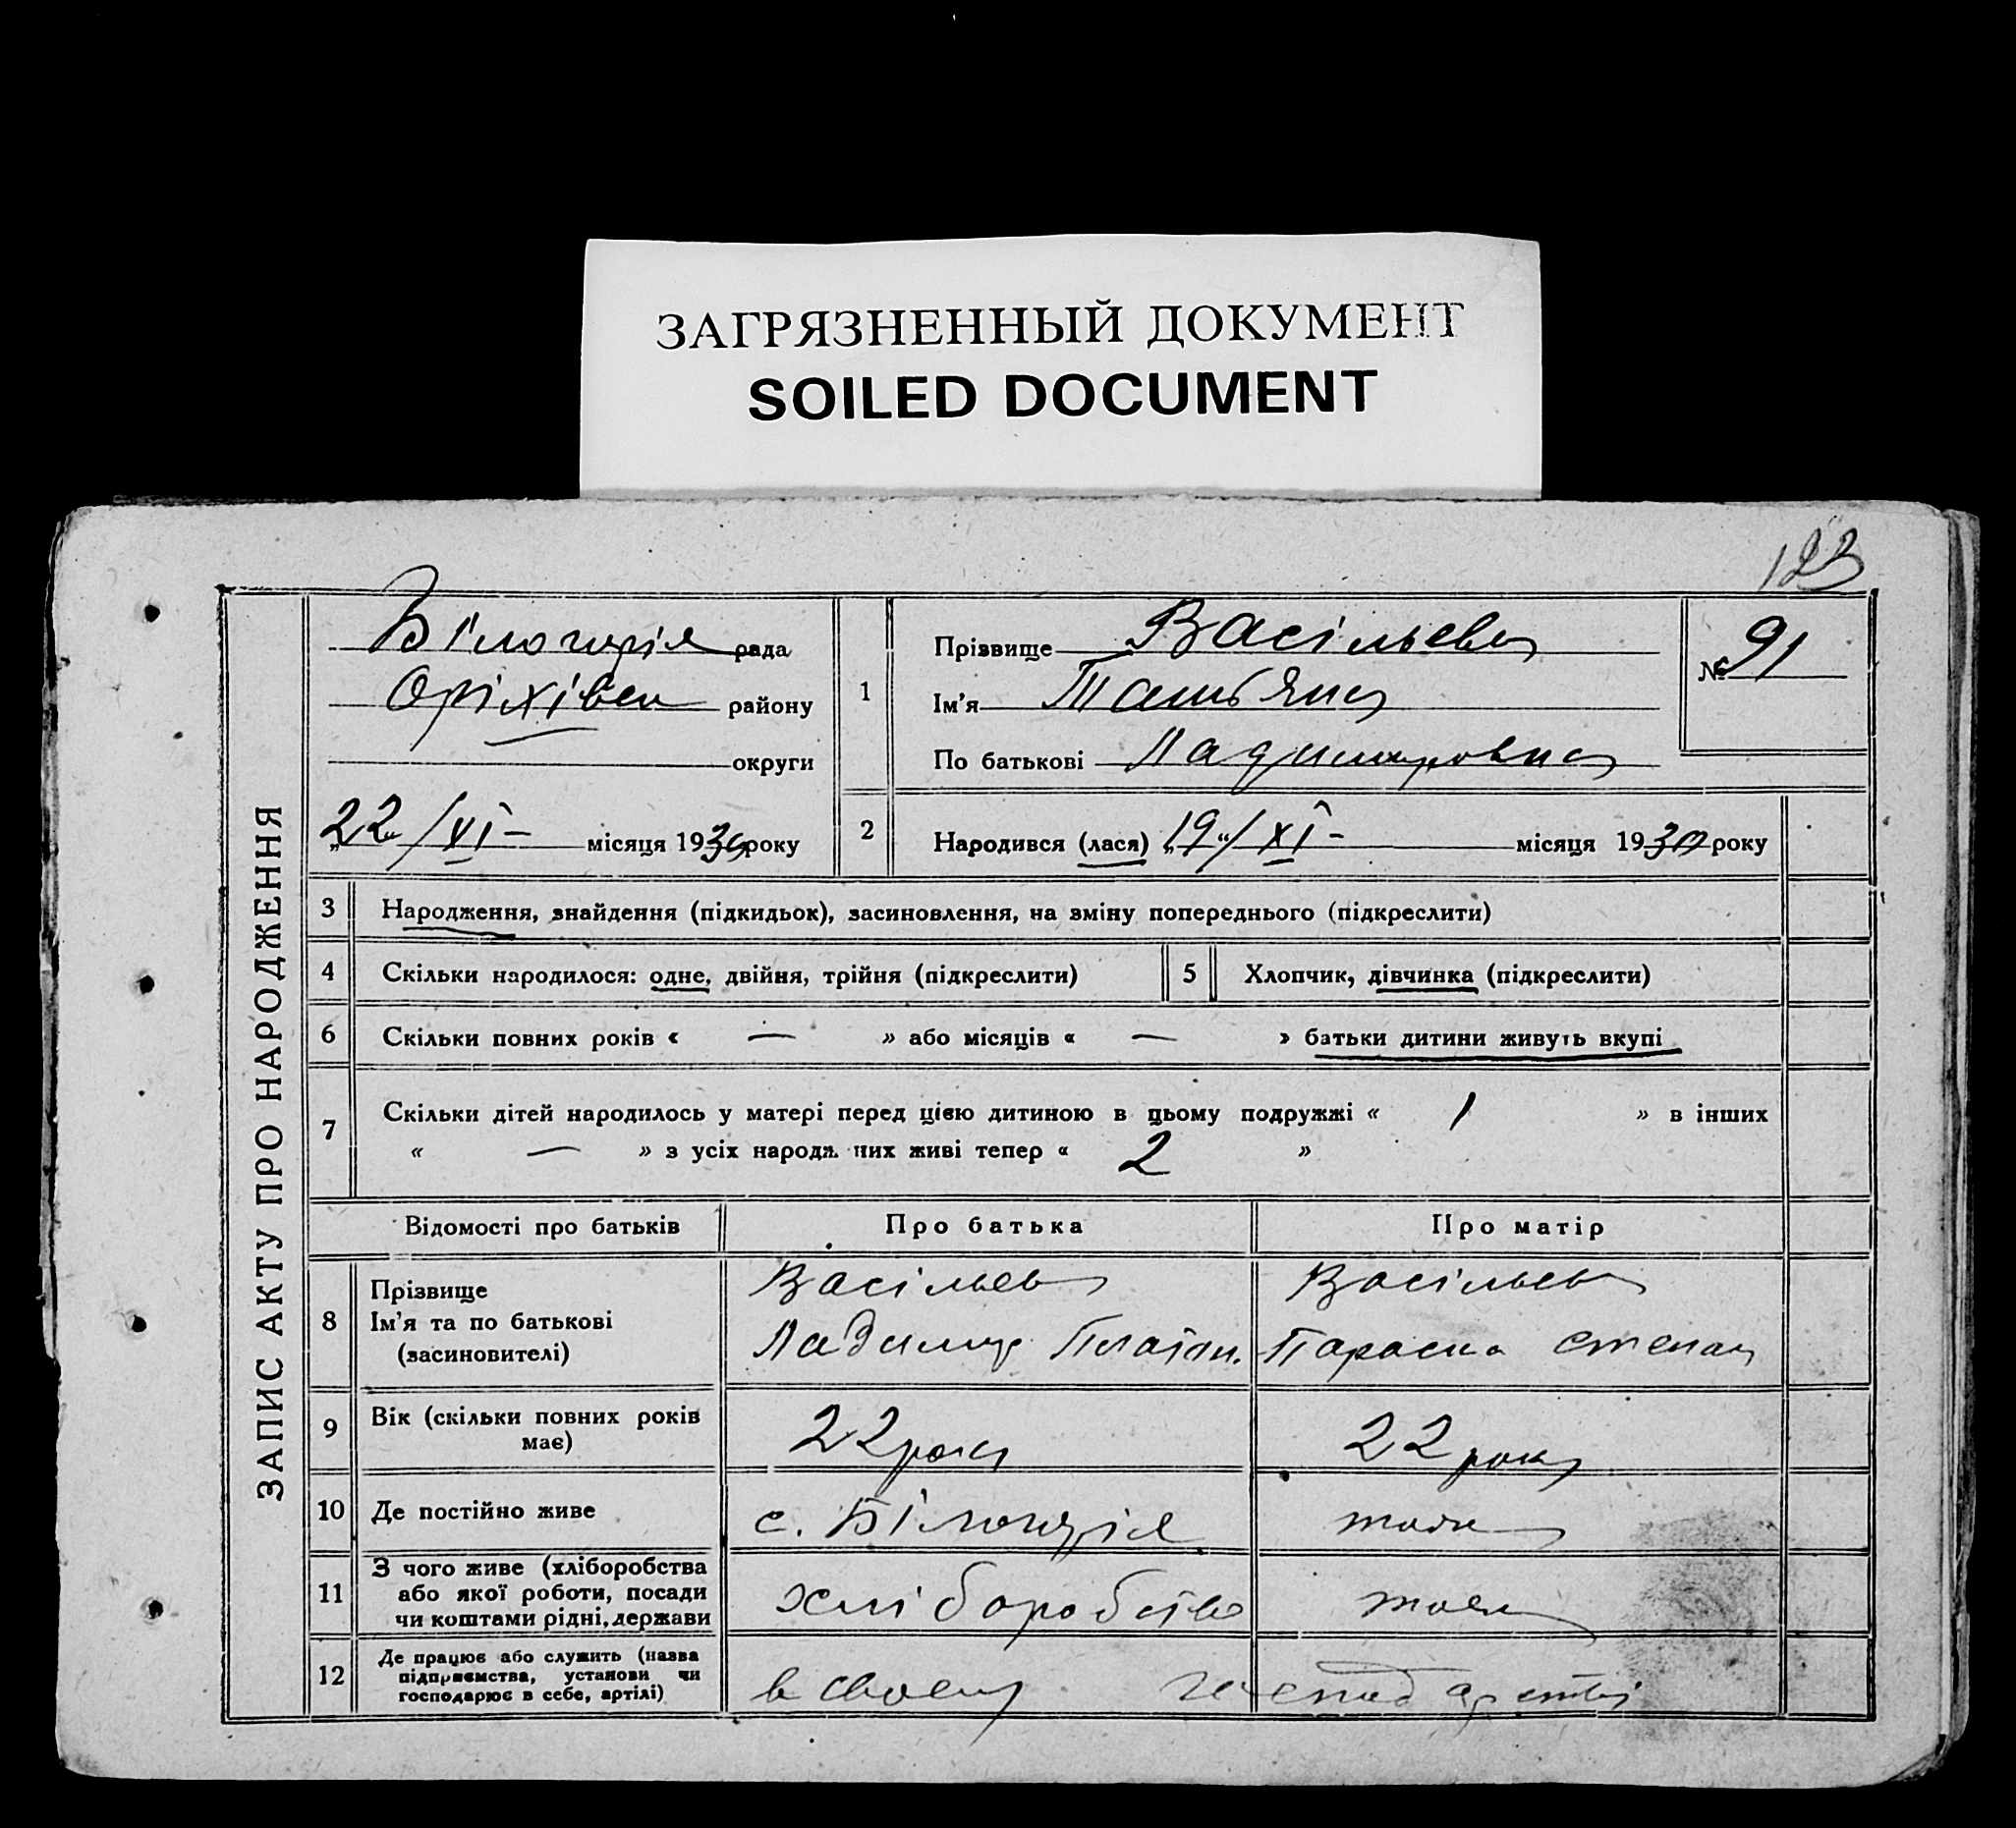 ЗАГРЯЗНЕННЫЙ ДОКУМЕНТ
SOILED DOCUMENT
123
ЗАПИС АКТУ ПРО НАРОДЖЕННЯ
Білогоріє рада
Оріхівськ району
округи
„22“/XI- місяця 1930 року
1
Прізвище Васільева
Ім'я Татьяна
По батькові Ладимировна
№ 91
2
Народився (лася) „19“/XI- місяця 1930 року
3 Народження, знайдення (підкидьок), засиновлення, на зміну попереднього (підкреслити)
4 Скільки народилося: одне, двійня, трійня (підкреслити)
5 Хлопчик, дівчинка (підкреслити)
6 Скільки повних років « — » або місяців « — » батьки дитини живуть вкупі
7 Скільки дітей народилось у матері перед цією дитиною в цьому подружжі « 1 » в інших
« — » з усіх народж них живі тепер « 2 »
Відомості про батьків Про батька Про матір
8 Прізвище
Ім'я та по батькові
(засиновителі)
Васільев
Ладимир Платон.
Васільев
Параска Степан
9 Вік (скільки повних років
має)
22 роки
22 роки
10 Де постійно живе
с. Білогоріє
тоже
11 З чого живе (хліборобства
або якої роботи, посади
чи коштами рідні, держави
хліборобство
тоже
12 Де працює або служить (назва
підприємства, установи чи
господарює в себе, артілі)
в своему